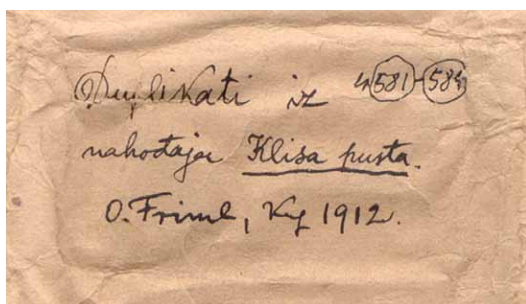 Duplikati iz 581-584
nahođaja Klisa pusta.
O. Friml, 1912.